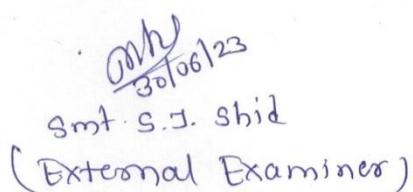 30/06/23
Smt. S.J. Shid
(External Examiner)